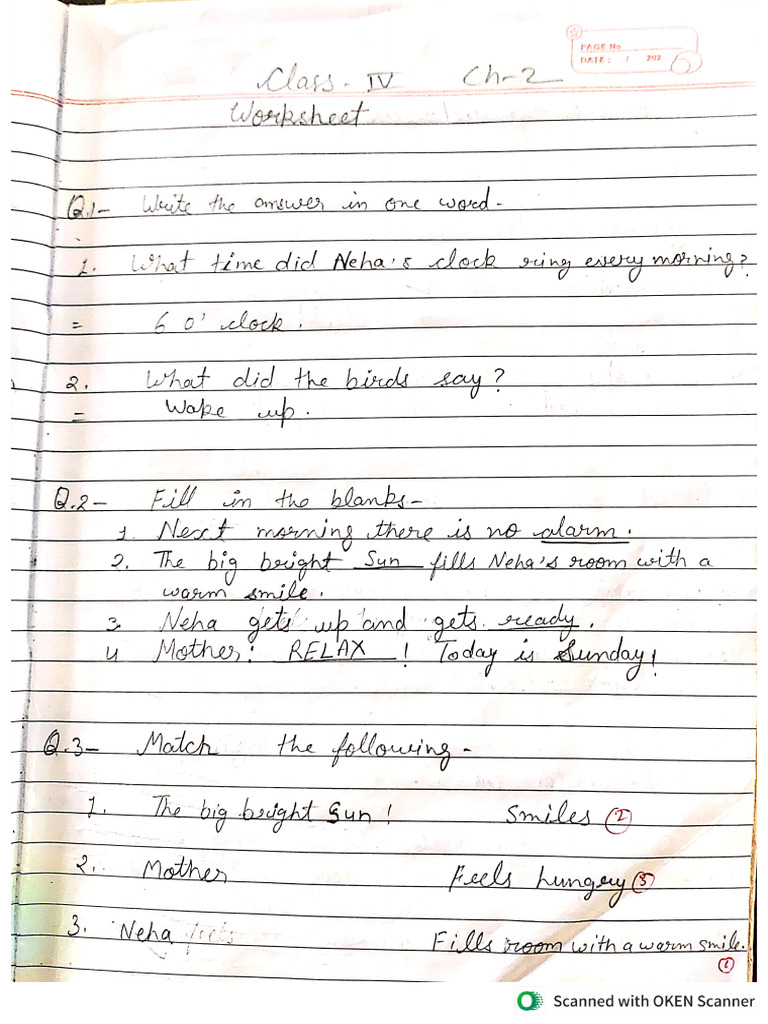 PAGE No
DATE: / 202
Class. IV Ch-2
Worksheet
Q.1- Write the answer in one word-
1. What time did Neha's clock ring every morning?
= 6 O' clock.
2. What did the birds say?
= Wake up.
Q.2- Fill in the blanks-
1. Next morning there is no alarm.
2. The big bright Sun fills Neha's room with a
warm smile.
3. Neha gets up and gets ready.
4 Mother: RELAX ! Today is Sunday!
Q.3- Match the following-
1. The big bright Sun! Smiles 2
2. Mother Feels hungry 3
3. Neha feels Fills room with a warm smile.
1
Scanned with OKEN Scanner